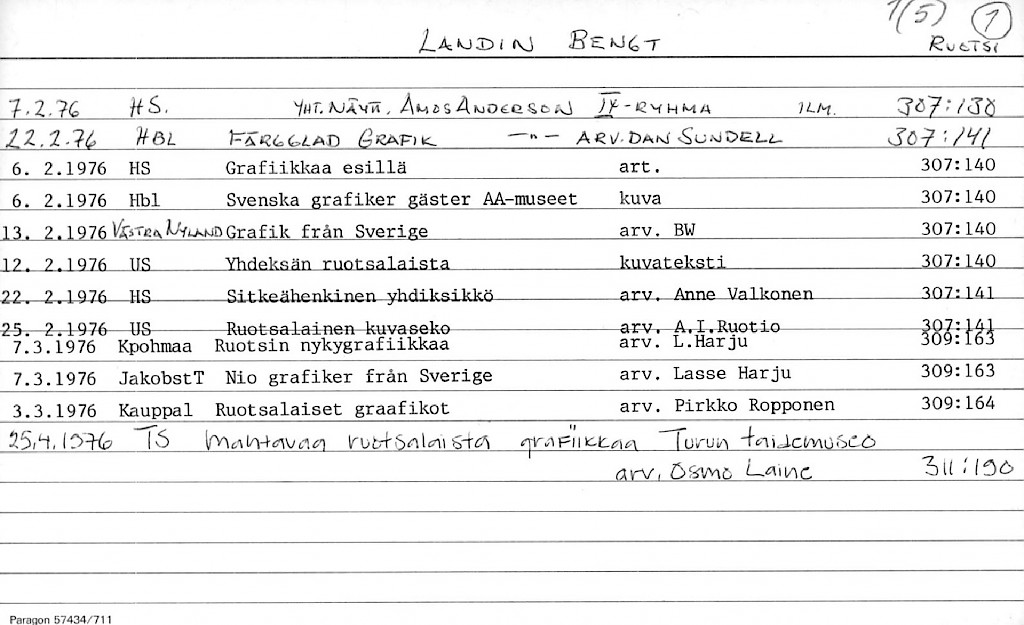 1(5) 1
LANDIN BENGT RUOTSI
7.2.76 HS. YHT.NÄYTT. AMOS ANDERSON IX-RYHMÄ ILM. 307:138
22.2.76 HBL FÄRGGLAD GRAFIK —"— ARV. DAN SUNDELL 307:141
6. 2.1976 HS Grafiikkaa esillä art. 307:140
6. 2.1976 Hbl Svenska grafiker gäster AA-museet kuva 307:140
13. 2.1976 VÄSTRA NYLAND Grafik från Sverige arv. BW 307:140
12. 2.1976 US Yhdeksän ruotsalaista kuvateksti 307:140
22. 2.1976 HS Sitkeähenkinen yhdiksikkö arv. Anne Valkonen 307:141
25. 2.1976 US Ruotsalainen kuvaseko arv. A.I.Ruotio 307:141
7.3.1976 Kpohmaa Ruotsin nykygrafiikkaa arv. L.Harju 309:163
7.3.1976 JakobstT Nio grafiker från Sverige arv. Lasse Harju 309:163
3.3.1976 Kauppal Ruotsalaiset graafikot arv. Pirkko Ropponen 309:164
25.4.1976 TS Mahtavaa ruotsalaista grafiikkaa Turun taidemuseo
arv. Osmo Laine 311:190
Paragon 57434/711